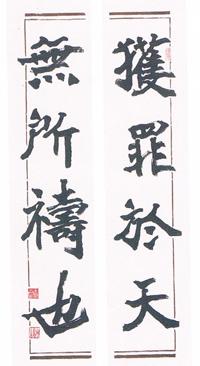 獲罪於天
無所禱也